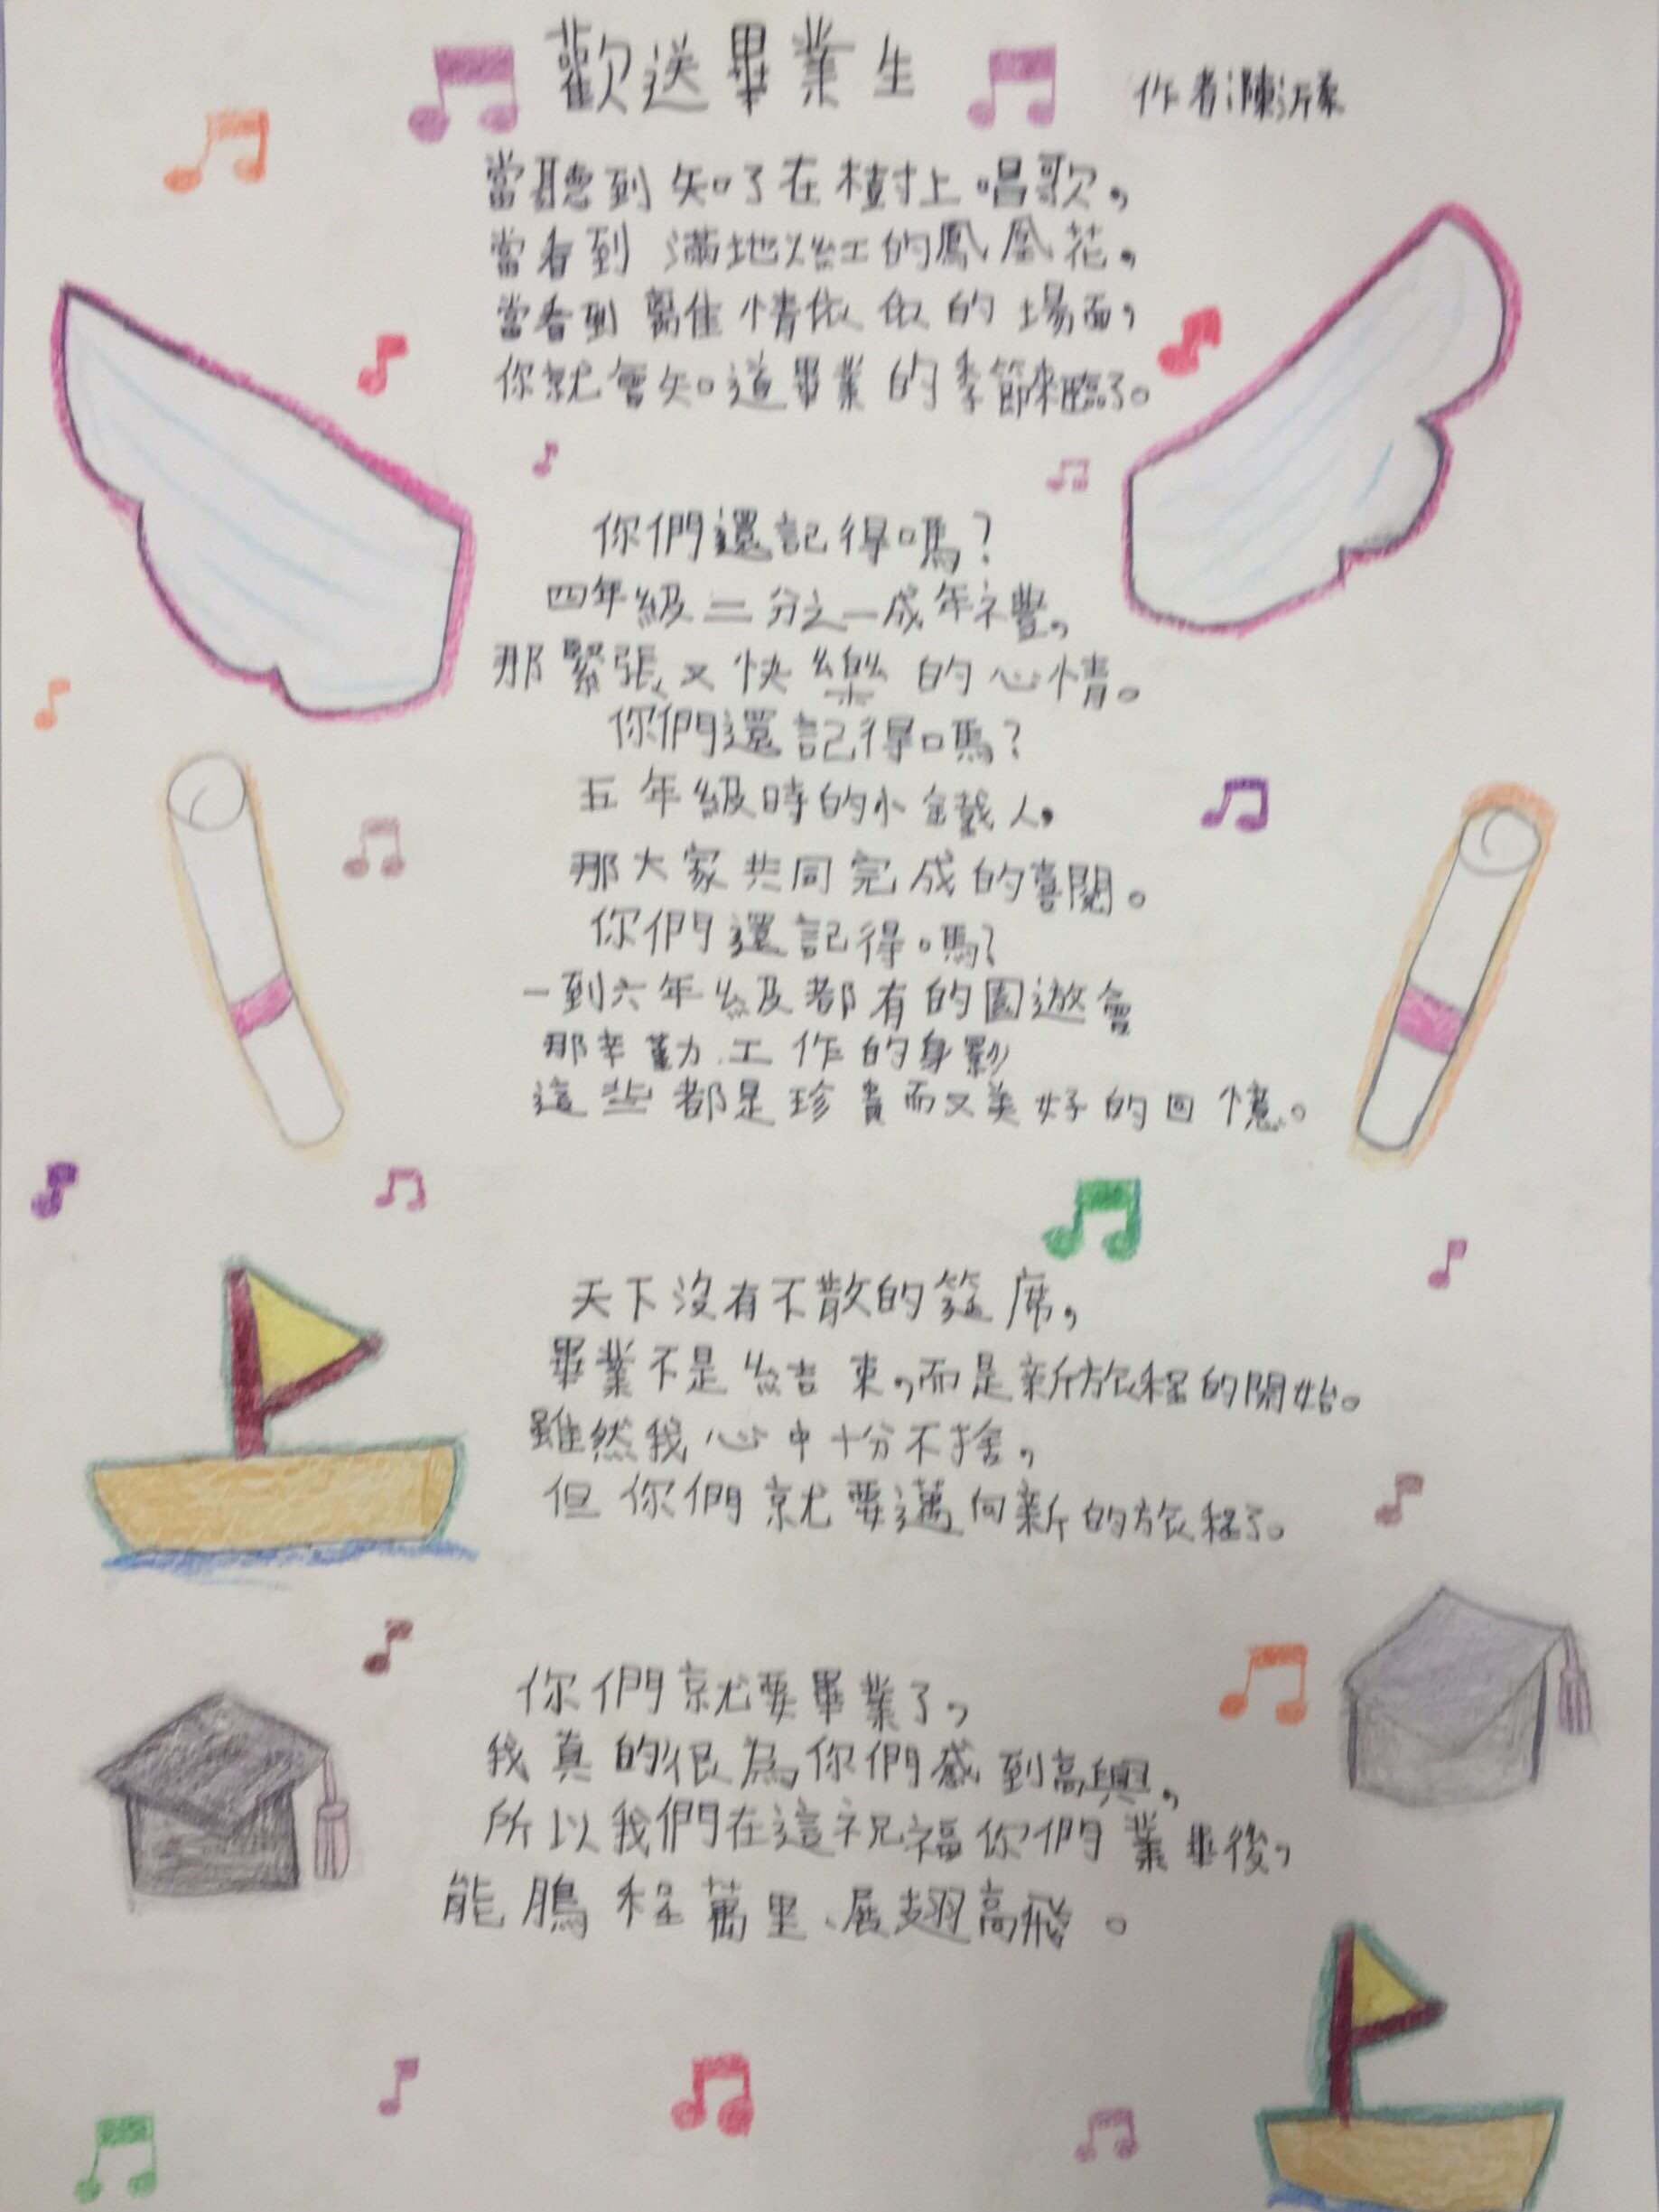 歡送畢業生
作者:陳沂
當聽到知了在樹上唱歌,
當看到滿地火紅的鳳凰花,
當看到離情依依的場面,
你就會知道畢業的季節來臨了。
你們還記得嗎?
四年級二分之一成年禮,
那緊張又快樂的心情。
你們還記得嗎?
五年級時的小鐵人,
那大家共同完成的喜閱。
你們還記得嗎?
一到六年級都有的園遊會
那辛勤工作的身影
這些都是珍貴而又美好的回憶。
天下沒有不散的筵席,
畢業不是結束,而是新旅程的開始。
雖然我心中十分不捨,
但你們就要邁向新的旅程了。
你們就要畢業了,
我真的很為你們感到高興,
所以我們在這祝福你們業畢後,
能鵬程萬里、展翅高飛。